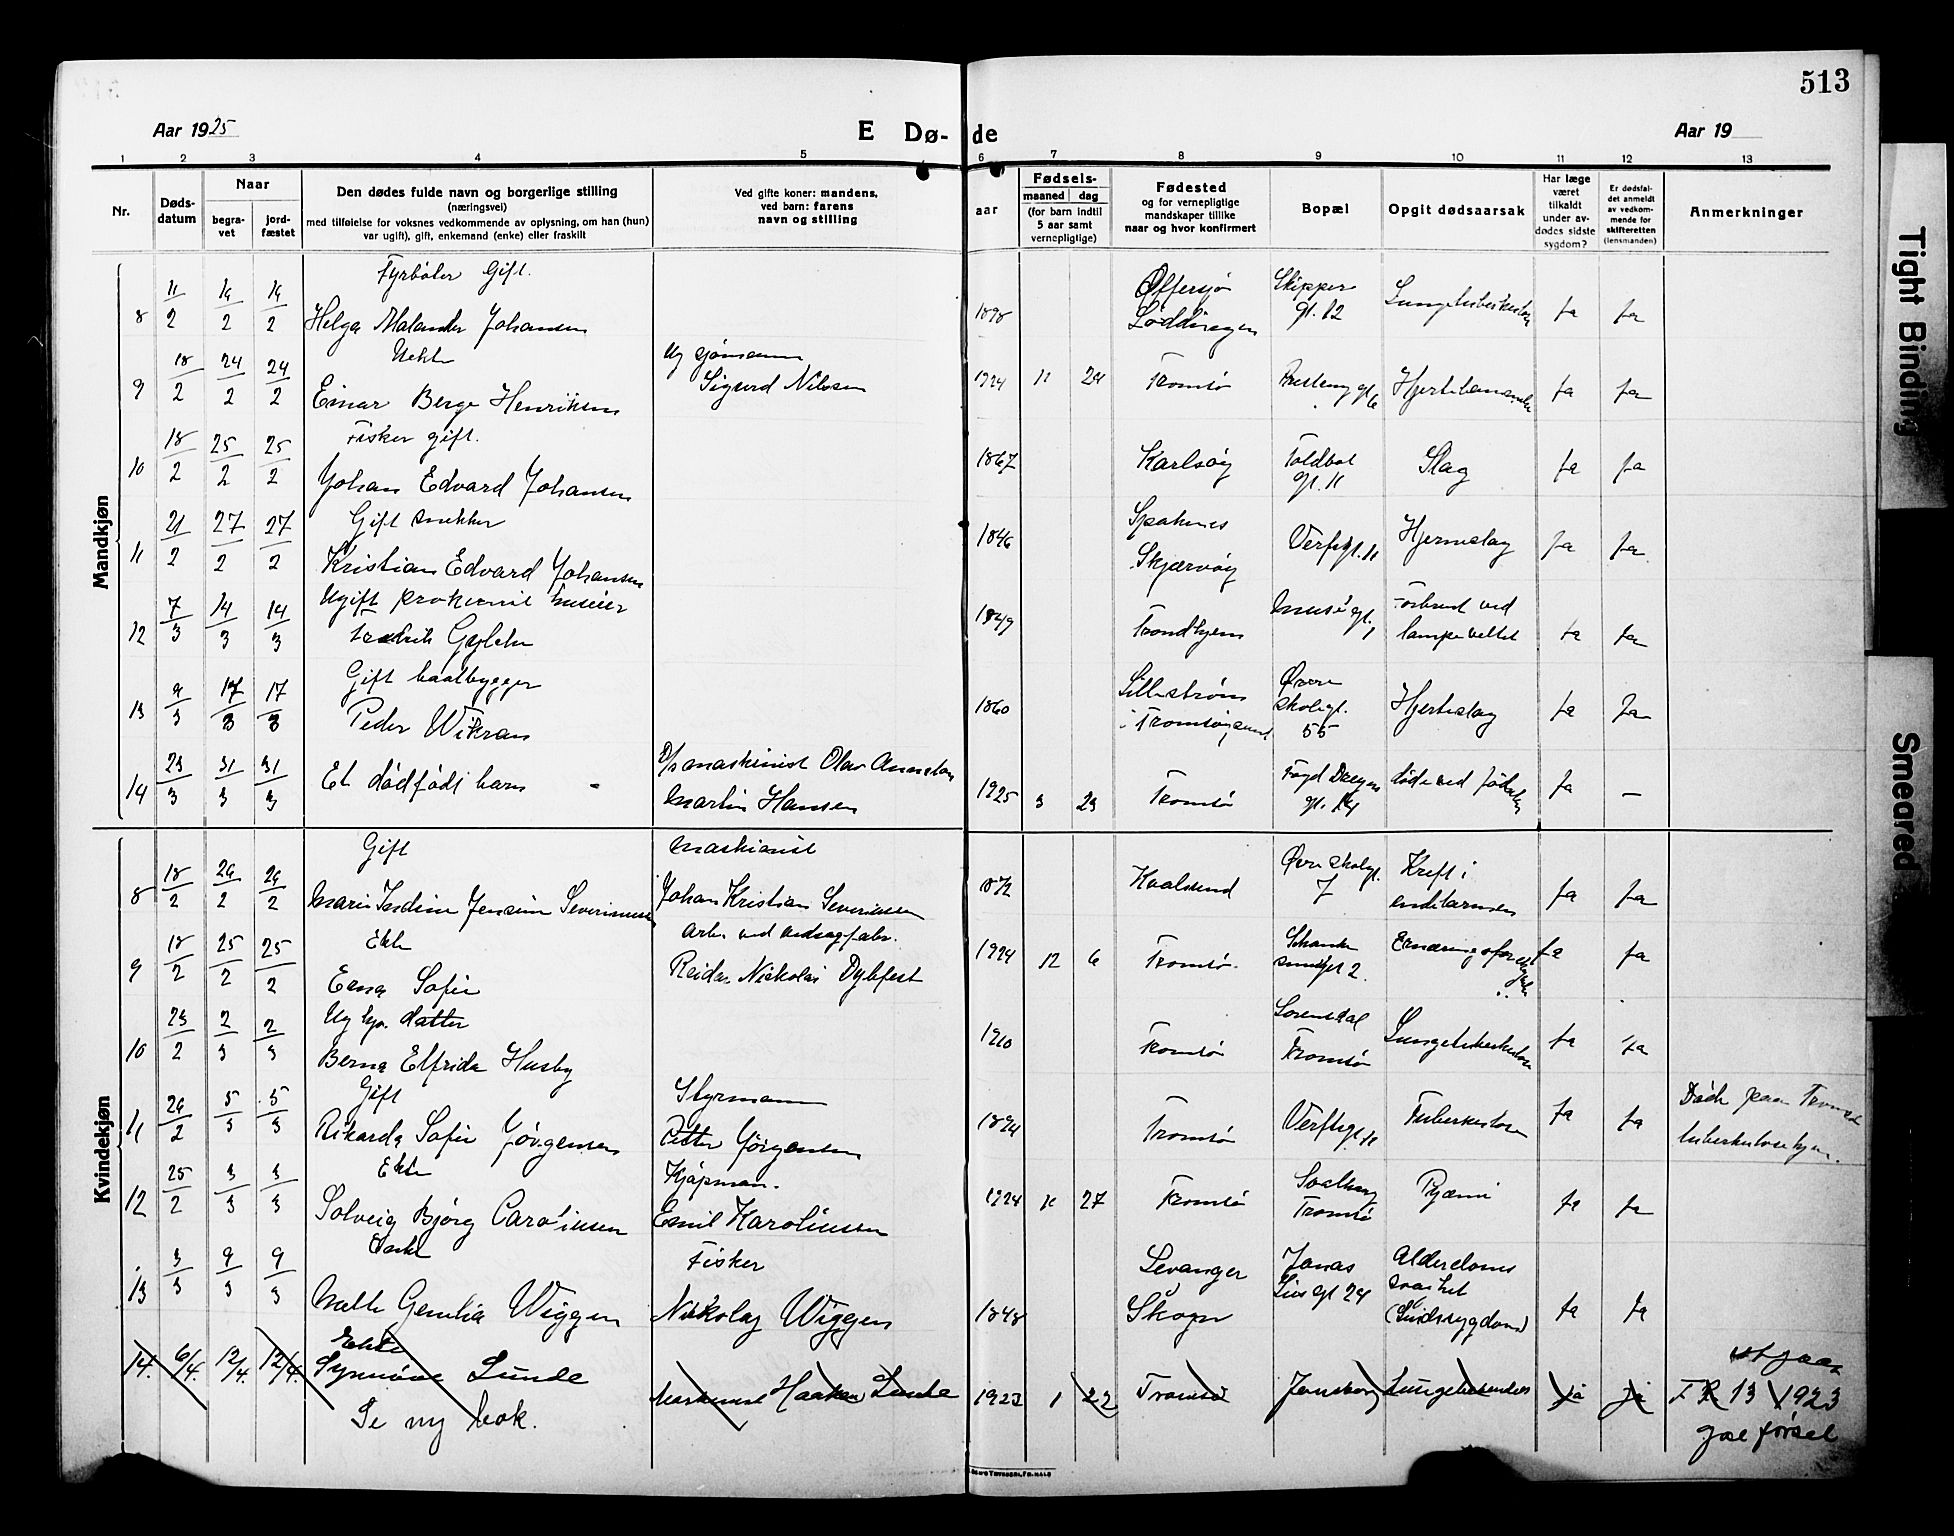 513
Aar 1925
E Dø-
de
Aar 19
1 2 3 4 5 6 7 8 9 10 11 12 13
Nr.
Døds-
datum
Naar
begra-
vet
jord-
fæstet
Den dødes fulde navn og borgerlige stilling
(næringsvei)
med tilføielse for voksnes vedkommende av oplysning, om han (hun)
var ugift), gift, enkemand (enke) eller fraskilt
Ved gifte koner: mandens,
ved barn: farens
navn og stilling
aar
Fødsels-
maaned dag
(for barn indtil
5 aar samt
vernepligtige)
Fødested
og for vernepligtige
mandskaper tillike
naar og hvor konfirmert
Bopæl
Opgit dødsaarsak
Har læge
været
tilkaldt
under av-
dødes sidste
sygdom?
Er dødsfal-
det anmeldt
av vedkom-
mende for
skifteretten
(lensmanden)
Anmerkninger
Mandkjøn
Fyrbøter Gift.
8 11/2 19/2 19/2 Helga Malander Johansen 1898 Øffersjø Lødingen Skipper gt. 12 Lungetuberkulose ja ja
Uekte
9 18/2 24/2 24/2 Einar Berge Henriksen Ug sjømann Sigurd Nilsen 1924 11 29 Tromsø gt 6 ja ja
Fisker gift.
10 18/2 25/2 25/2 Johan Edvard Johansen 1867 Karlsøy Toldbod gt. 11 Slag ja ja
Gift snekker
11 21/2 27/2 27/2 Kristian Edvard Johansen 1846 Spaknes Skjærvøy Verftsgt. 11 Hjerneslag ja ja
Ugift prokurist huseier
12 7/3 14/3 14/3 Fredrik 1849 Trondhjem Muse gt. 1 Forbrent ved lampeveltet ja ja
Gift baatbygger
13 9/3 17/3 17/3 Peder Wikran 1860 Lillestrøm i Tromsøysund Øvre skolegt. 55 Hjerteslag ja ja
14 23/3 31/3 31/3 Et dødfødt barn D/s maskinist Olav Martin Hansen 1925 3 23 Tromsø Fogd Dreyers gt. 14 døde ved fødselen ja —
Kvindekjøn
Gift Maskinist
8 18/2 24/2 24/2 Marie Jensine Severinsen Johan Kristian Severinsen 1872 Kvalsund Øvre skolegt. 7 Kreft i endetarmen ja ja
Ekte Arb. ved
9 18/2 25/2 25/2 Erna Sofie Reidar Nickolai Dybfest 1924 12 6 Tromsø. gt 2. ja ja
Ug datter
10 23/2 2/3 2/3 Berna Elfrida Husby 1910 Tromsø Sorensdal Tromsø Lungetuberkulose ja ja
Gift Styrmann
11 24/2 5/3 5/3 Rikarda Sofie Jørgensen Petter Jørgensen 1894 Tromsø Verftsgt. 11 Tuberkulose ja ja Døde paa Tromsø tuberkulosehjem.
Ekte Kjøpman.
12 25/2 3/3 3/3 Solveig Bjørg Carolinsen Emil Karolinsen 1924 11 27 Tromsø Solberg Tromsø Pyæmi ja ja
Enke Fisker
13 3/3 9/3 9/3 Wiggen Nikolay Wiggen 1848 Levanger Skogn Jonas Lies gt 24 Alderdoms svakhet (Sindssygdom) ja ja
Ekte
14. 6/4. 12/4. 12/4. Synnøve Lunde Maskinist Haakon Lunde 1923 1 22 Tromsø Jansberg Lungebetendelse ja ja utgaar F R 13 1923
Se ny bok.